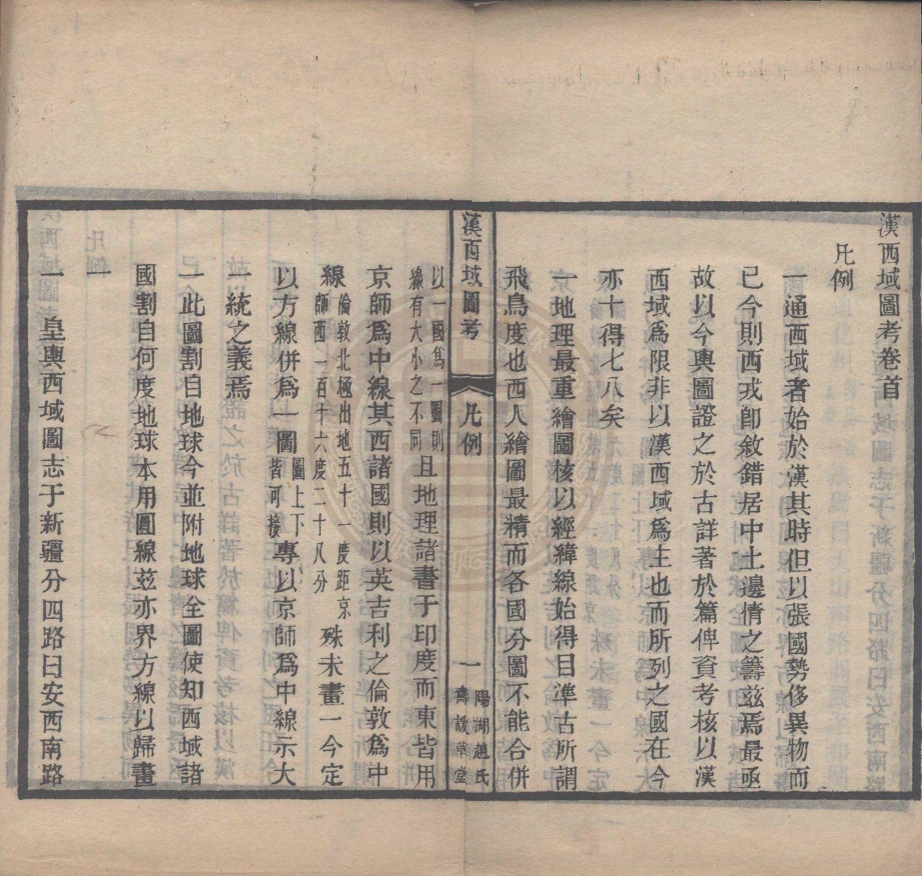 漢西域圖考卷首
凡例
一通西域者始於漢其時但以張國勢侈異物而
已今則西戎卽敘錯居中土邊情之籌茲焉最亟
故以今輿圖證之於古詳著於篇俾資考核以漢
西域爲限非以漢西域爲主也而所列之國在今
亦十得七八矣
一地理最重繪圖核以經緯線始得目準古所謂
飛鳥度也西人繪圖最精而各國分圖不能合併
漢西域圖考 凡例 一 陽湖趙氏 壽諼草堂
以一國爲一圖則線有大小之不同且地理諸書于印度而東皆用
京師爲中線其西諸國則以英吉利之倫敦爲中
線倫敦北極出地五十一度距京師西一百十六度二十八分殊未畫一今定
以方線併爲一圖圖上下皆可接專以京師爲中線示大
一統之義焉
一此圖割自地球今並附地球全圖使知西域諸
國割自何度地球本用圓線茲亦界方線以歸畫
一
一皇輿西域圖志于新疆分四路曰安西南路